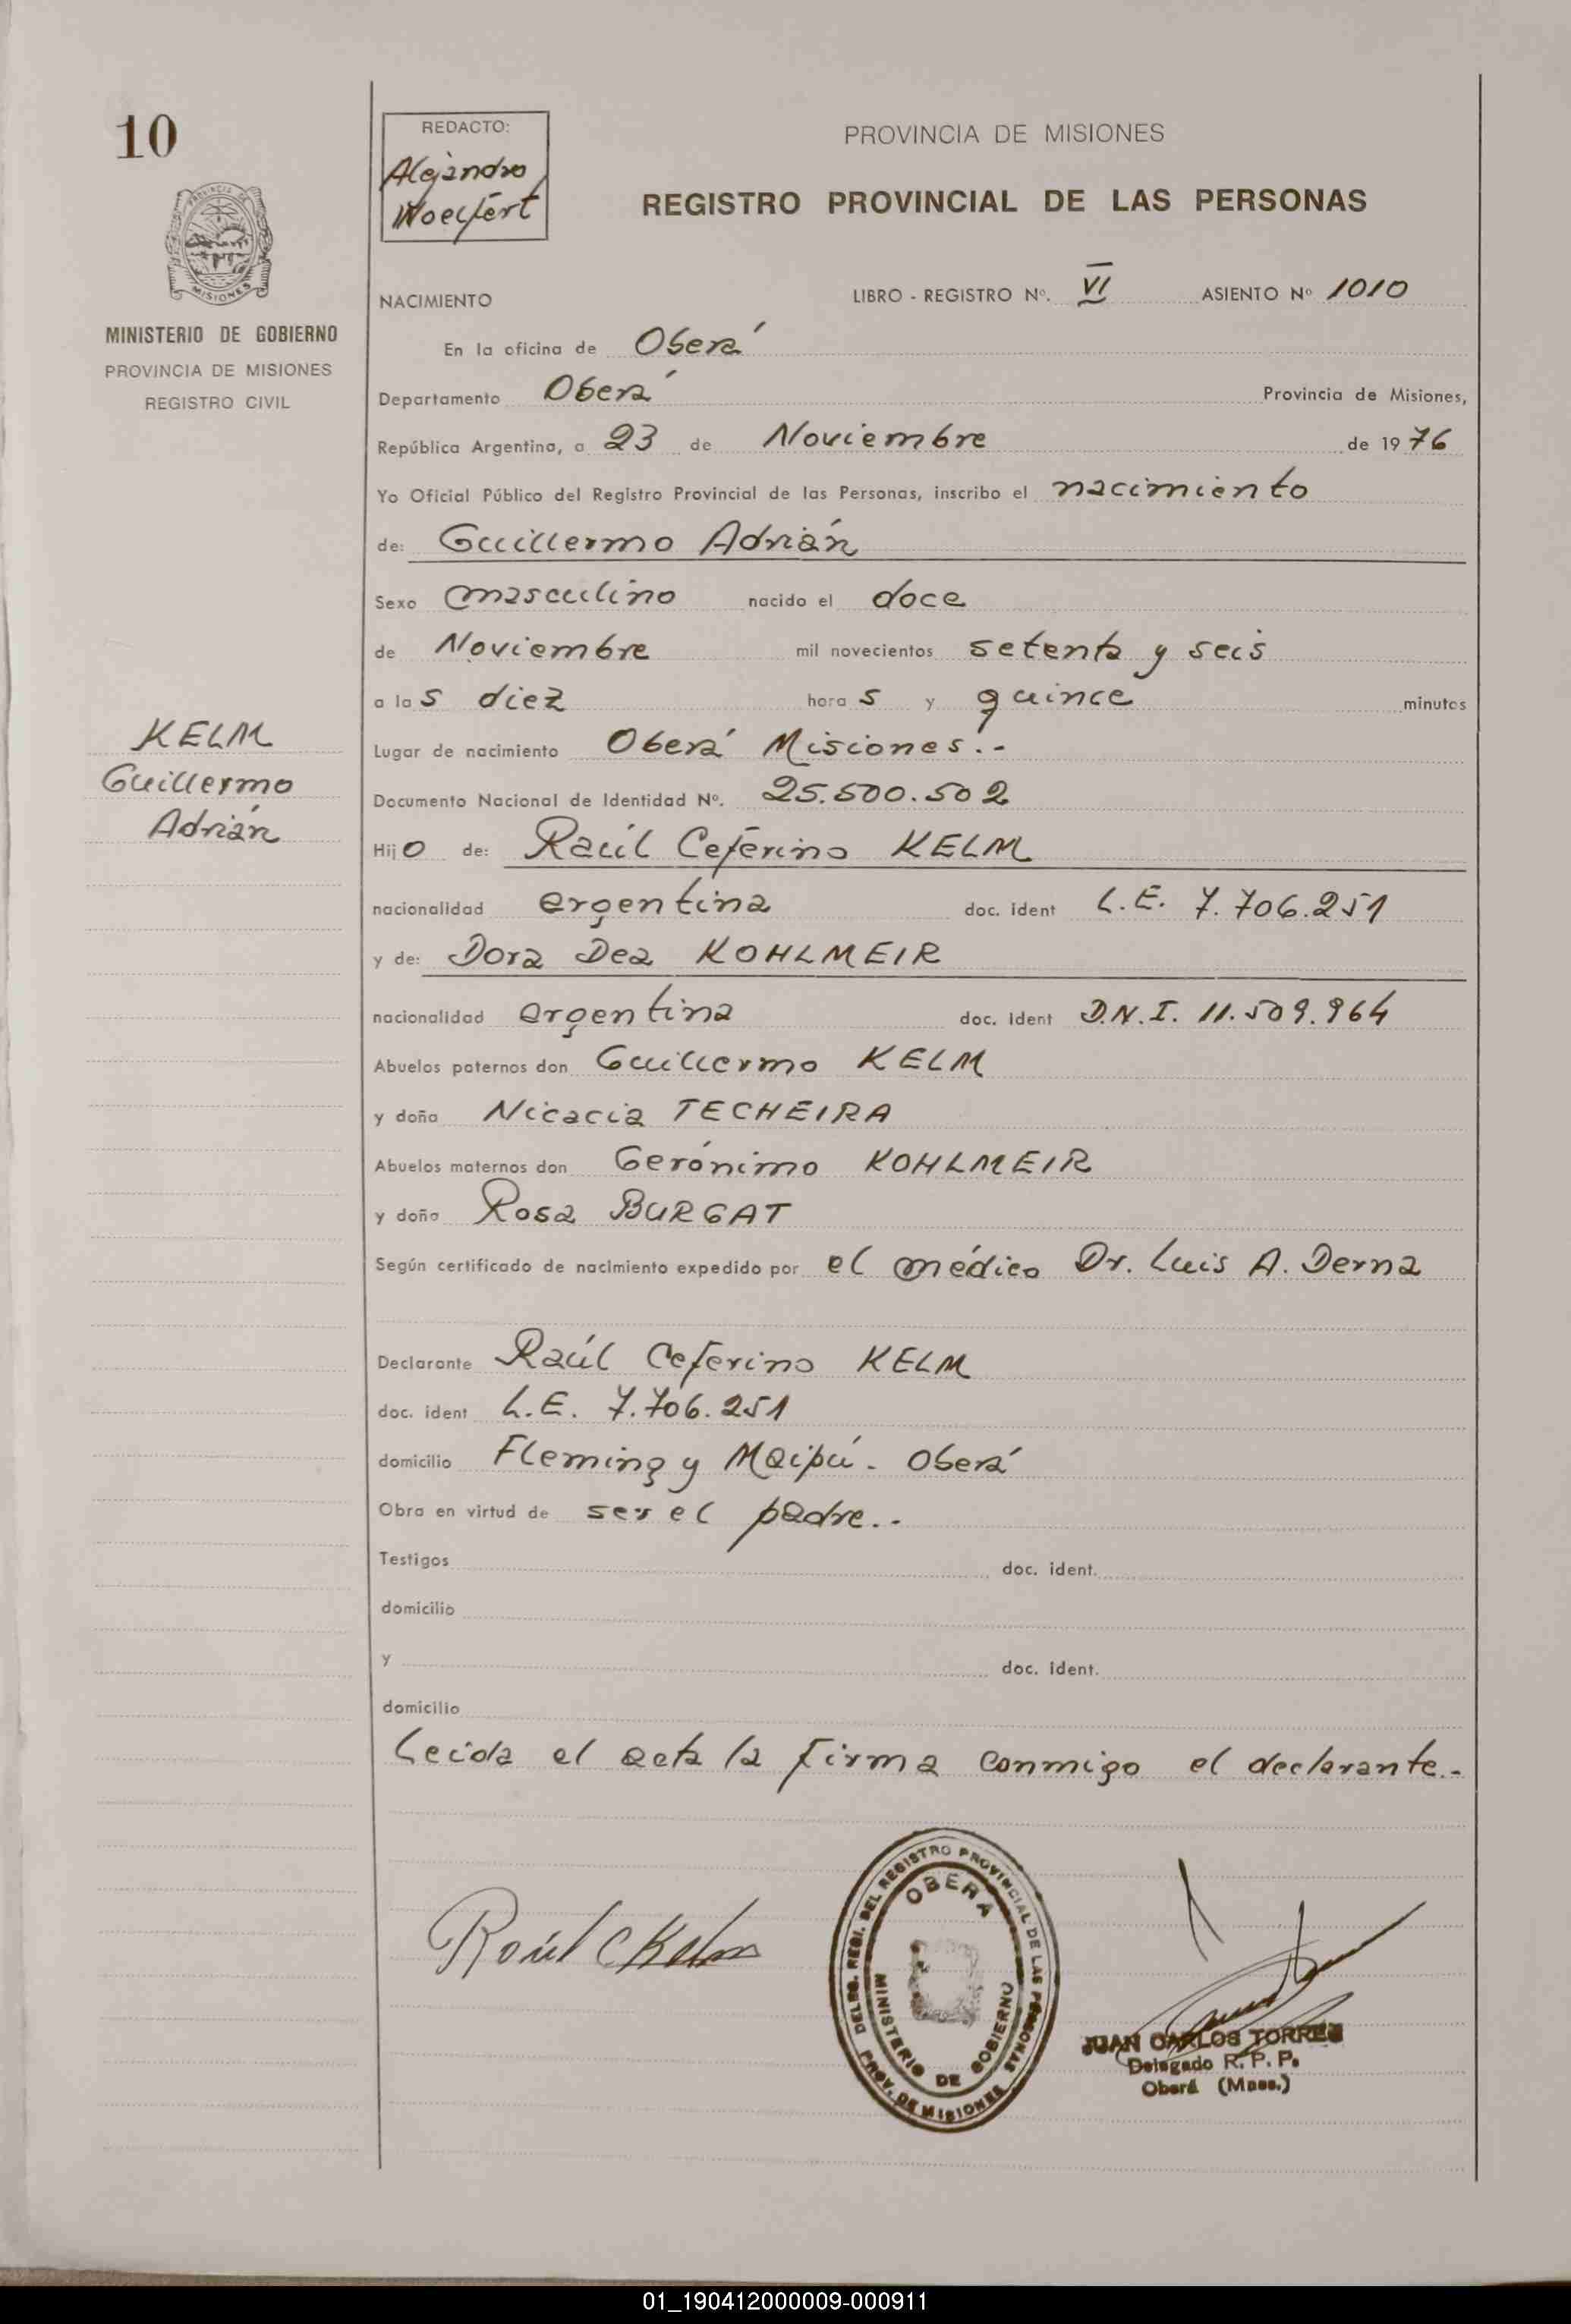 10
REDACTO:
Alejandro
PROVINCIA DE MISIONES
REGISTRO PROVINCIAL DE LAS PERSONAS
PROVINCIA DE
MISIONES
MINISTERIO DE GOBIERNO
PROVINCIA DE MISIONES
REGISTRO CIVIL
NACIMIENTO LIBRO - REGISTRO Nº. VI ASIENTO Nº 1010
En la oficina de Oberá
Departamento Oberá Provincia de Misiones,
República Argentina, a 23 de Noviembre de 1976
Yo Oficial Público del Registro Provincial de las Personas, inscribo el nacimiento
de: Guillermo Adrián
Sexo masculino nacido el doce
de Noviembre mil novecientos setenta y seis
a las diez horas y quince minutos
KELM
Guillermo
Adrián
Lugar de nacimiento Oberá Misiones.-
Documento Nacional de Identidad Nº. 25.500.502
Hijo de: Raúl Ceferino KELM
nacionalidad argentina doc. ident L.E. 7.706.251
y de: Dora Dea KOHLMEIR
nacionalidad argentina doc. ident D.N.I. 11.509.964
Abuelos paternos don Guillermo KELM
y doña Nicacia TECHEIRA
Abuelos maternos don Gerónimo KOHLMEIR
y doña Rosa BURGAT
Según certificado de nacimiento expedido por el médico Dr. Luis A. Derna
Declarante Raúl Ceferino KELM
doc. ident L.E. 7.706.251
domicilio Fleming y Maipú. Oberá
Obra en virtud de ser el padre.-
Testigos doc. ident.
domicilio
y doc. ident.
domicilio
Leida el acta la firma conmigo el declarante.-
Raúl C Kelm
DELEG. REGI. DEL REGISTRO PROVINCIAL DE LAS PERSONAS
OBERA
MINISTERIO DE GOBIERNO
PROV. DE MISIONES
JUAN CARLOS TORRES
Delegado R. P. P.
Oberá (Mnes.)
01_190412000009-000911